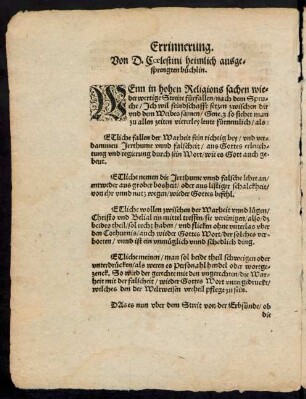 Errinnerung.
Von D. Cœlestini heimlich ausge-
sprengten büchlin.
WEnn in hohen Religions sachen wie-
der wertige Streit fürfallen/nach dem Spru-
che/Ich wil feindschafft setzen zwischen dir
vnd dem Weibes samen/Gene.3 so siehet man
zu allen zeiten viererley leute fürnemlich/als:
ETliche fallen der Warheit fein richtig bey/vnd ver-
dammen Jerthume vnnd falscheit/aus Gottes erleuch-
tung vnd regierung durch sein Wort/wie es Gott auch ge-
beut.
ETliche nemen die Jerthume vnnd falsche lehre an/
entweder aus grober bosheit/oder aus listiger schalckheit/
von ihr vnnd nutz wegen/wieder Gottes befehl.
ETliche wollen zwischen der Warheit vnnd lügen/
Christo vnd Belial ein mittel treffen/sie vereinigen/also/das
beides theil/sol recht haben/vnd flicken ohne vnterlas vber
den Cothurnis/auch wieder Gottes Wort/der solches ver-
boten/vnnd ist ein vnmüglich vnnd schedlich ding.
ETliche meinen/man sol beide theil schweigen oder
vnterdrücken/als weren es Personalhendel oder wortge-
zenck. So wird der gerechte mit den vngerechten/die War-
heit mit der falscheit/wieder Gottes Wort vntergedruckt/
welches den der Weltweisen vrtheil pflege zu sein.
DAs es nun vber dem Streit von der Erbsünde/ob
die